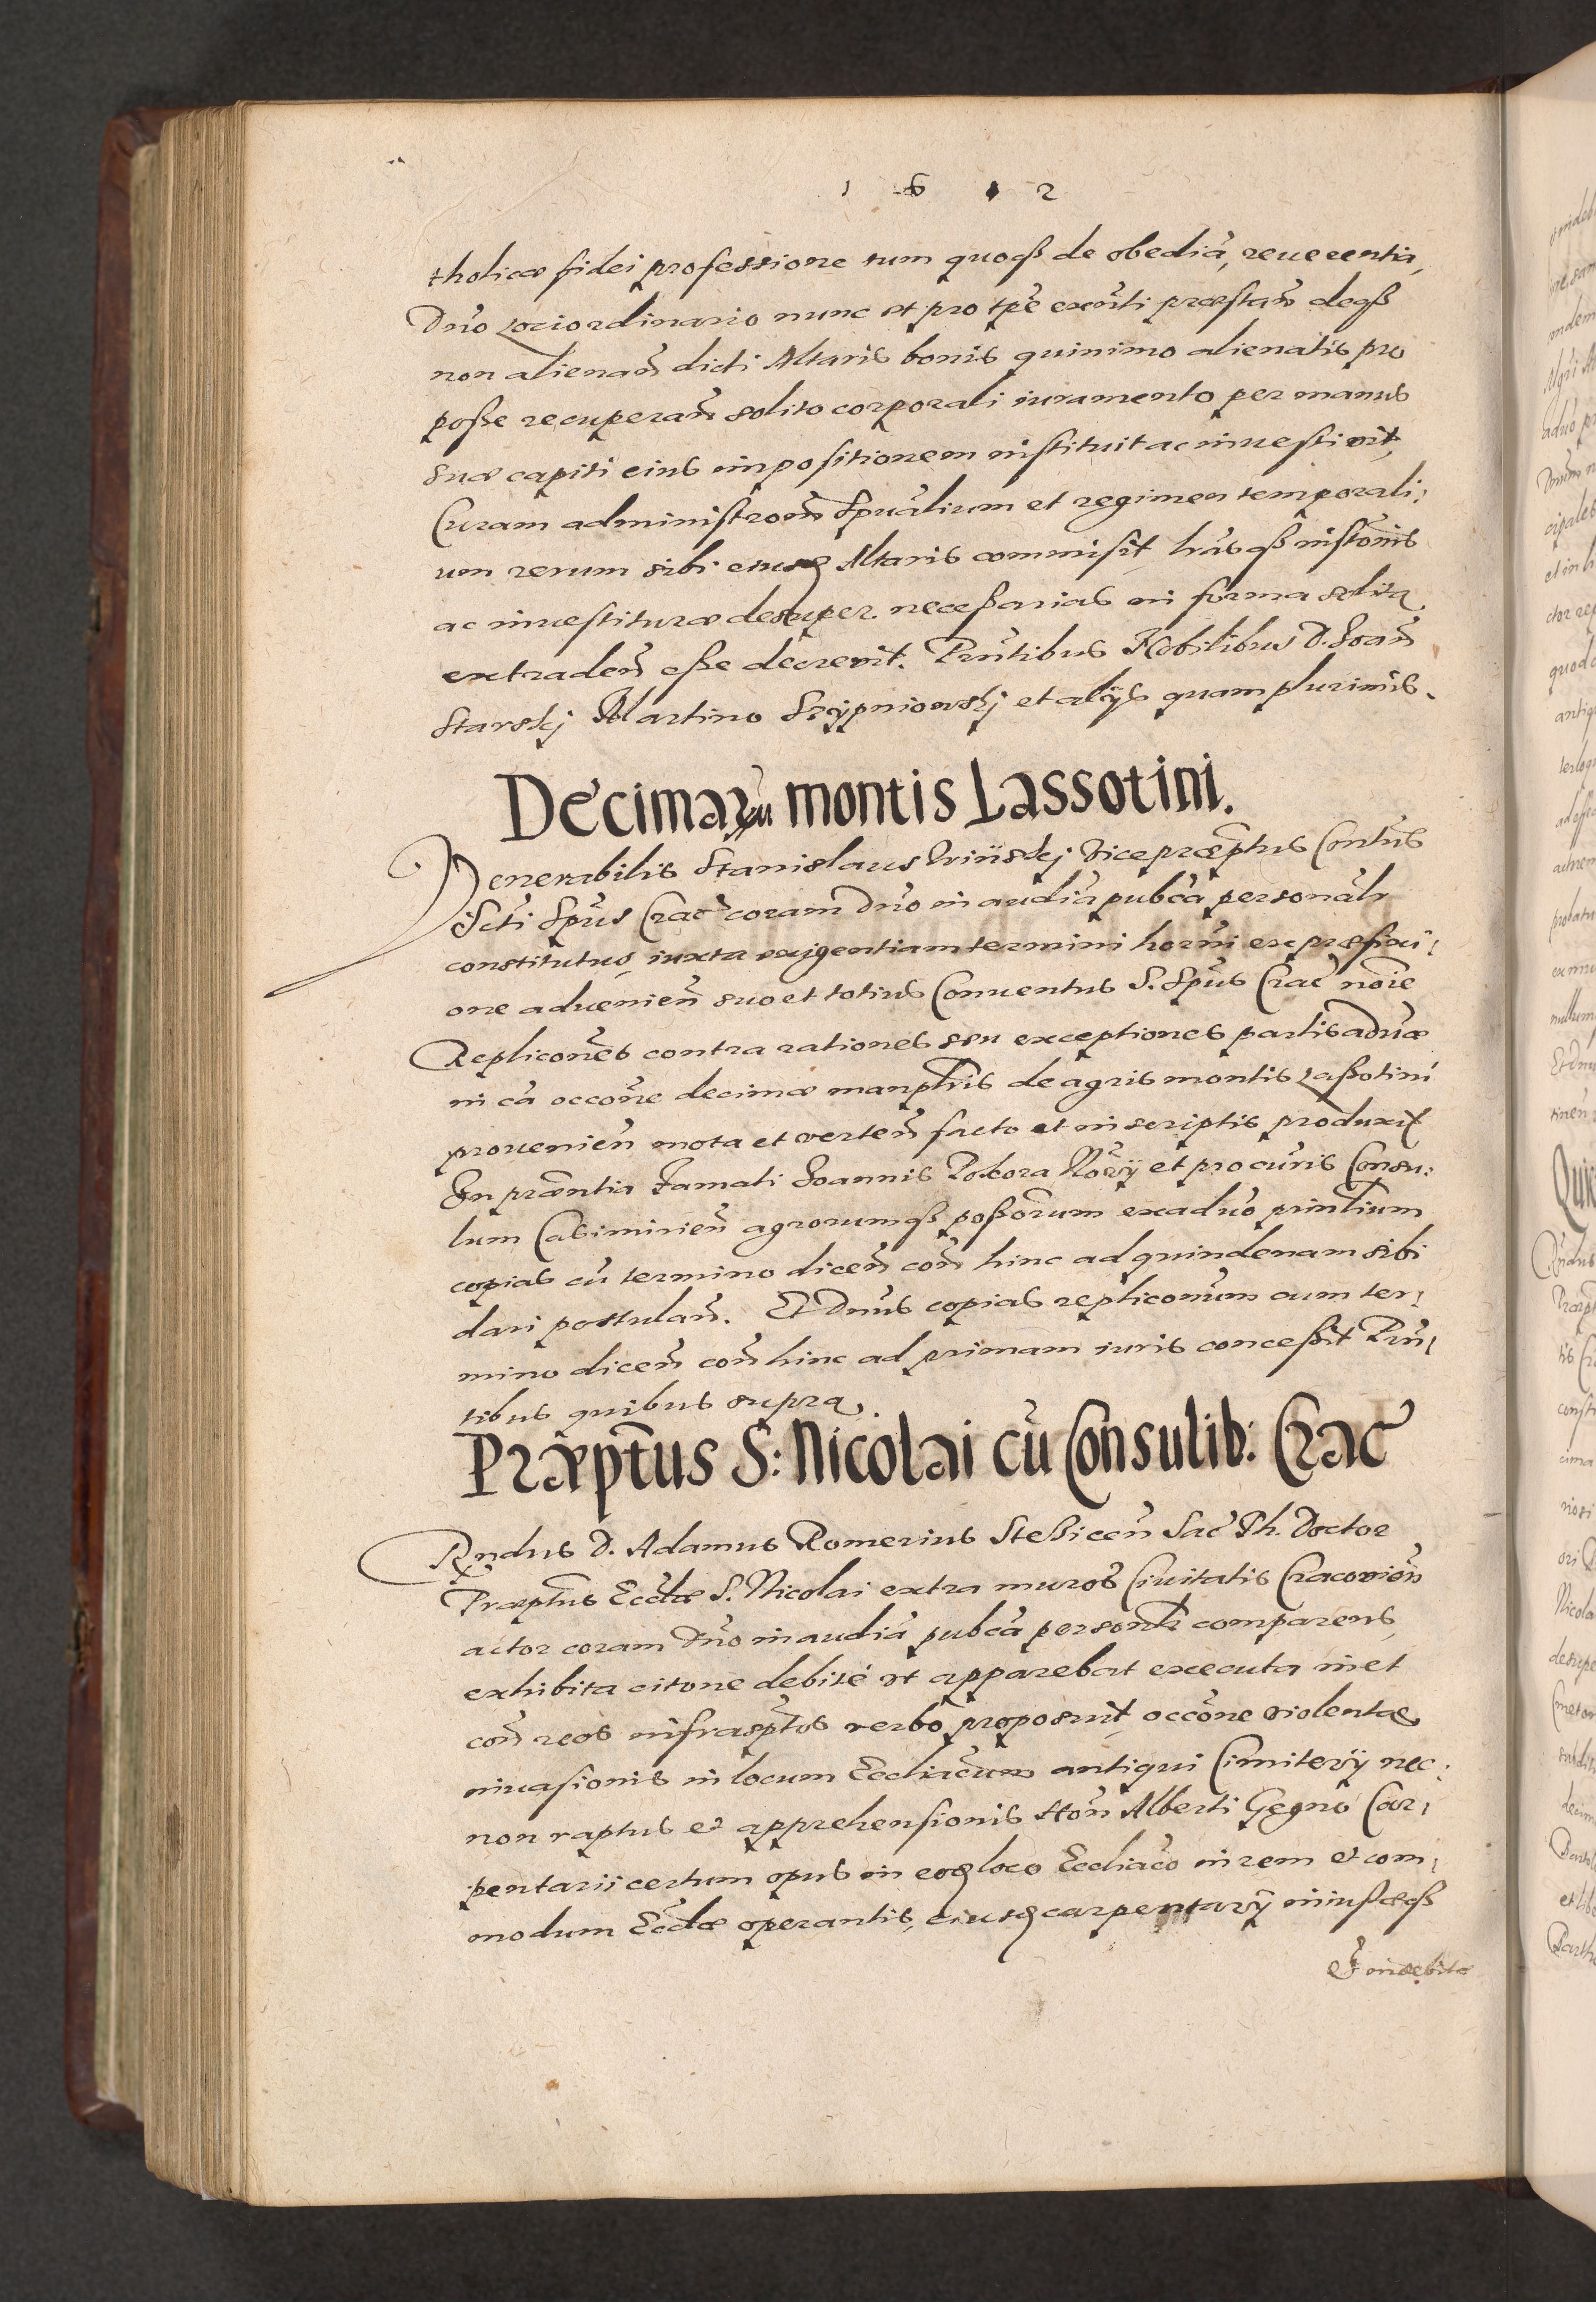 1 6 1 2
tholicæ fidei professione tum quoqß de obediã, reuerentia,
Dño Lociordinario nunc et pro tp̃e exñti præstañ deqß
non alienañ dicti Altaris bonis quinimo alienatis pro
poße recuperañ solito corporali iuramento per manus
suæ capiti eius impositionem instituit ac inuestiuit,
Curam administroẽm Spũalium et regimen temporali:
um rerum sibi eiusd Altaris commisit, lr̃asqß instõnis
ac inuestituræ desuper neceßarias in forma solita
extradeñ eße decreuit. Prñtibus Nobilibus D. Joañ
Starskj Martino Szÿpniowskj et alÿs quam plurimis.
Decimarũ montis Lassotini.
Venerabilis Stanislaus Vicepræptus Conũtus
Scti Spũs Crac̃ coram Dño in audiã pub̃ca personalr̃
constitutus, iuxta exigentiam termini horñi ex præfixi:
one adueniẽn suo et totius Conuentus S. Spũs Crac̃ nõie
Replicoñes contra rationes seu exceptiones partis aduæ̃
in cã occõne decimæ manip̃lris de agris montis Laßotini
prouenieñ mota et verteñ facto et in scriptis produxit
In præñtia Famati Joannis Pokora Norÿ et procuris Consu:
lum Casimirieñ agrorumqß poßorum ex aduo prin̄lium
copias cũ termino diceñ coñ hinc ad quindenam sibi
dari postulañ. Et Dnus copias repliconum cum ter:
mino diceñ coñ hinc ad primam iuris conceßit Prñ:
tibus quibus supra.
Præptus S: Nicolai cũ Consulib: Crac̃
Rndus D. Adamus Romerius Stęßiceñ Sac̃ Th. Doctor
Præptus Eccl̃æ S. Nicolai extra muros Ciuitatis Cracouieñ
actor coram Dño in audiã pub̃ca personlr̃ comparens,
exhibita citone debitè ut apparebat executa in et
coñ reos infrasp̃tos verbo proposuit, occõne violentæ
inuasionis in locum Eccliãcum antiqui Cimiterÿ nec:
non raptus et apprehensionis Hoñ Alberti Gęgno Car:
pentarii certum opus in eod loco Eccliãco in rem et com:
modum Eccl̃æ operantis, eiusd carpentarÿ iniustæqß
Et indebitæ